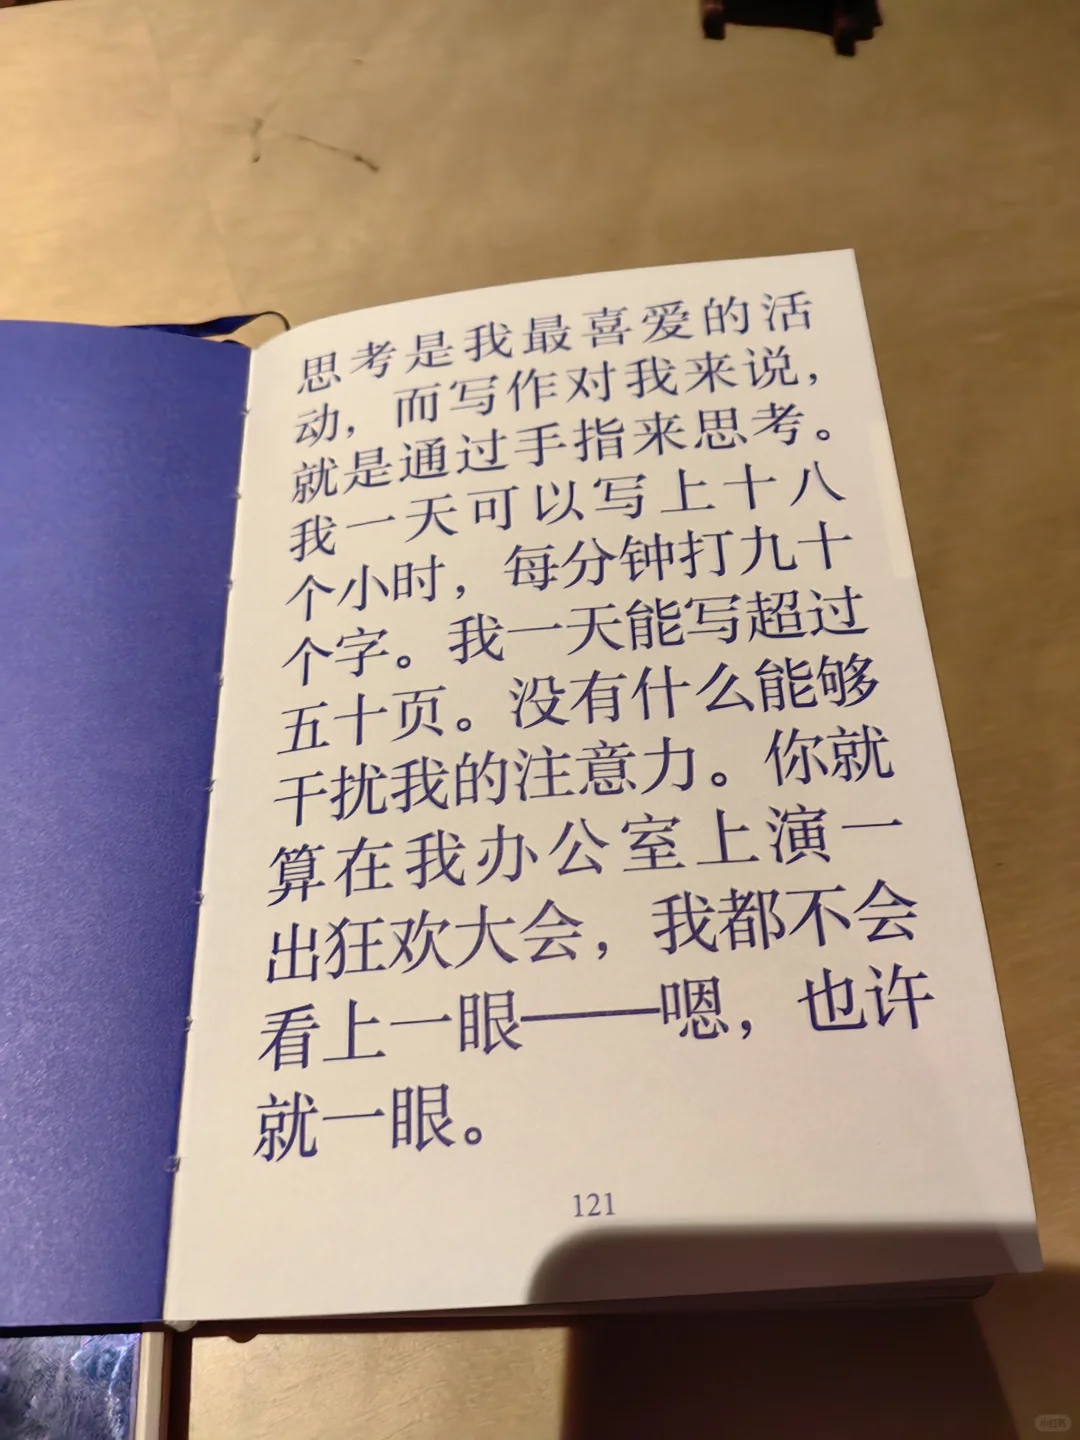 思考是我最喜爱的活
动，而写作对我来说，
就是通过手指来思考。
我一天可以写上十八
个小时，每分钟打九十
个字。我一天能写超过
五十页。没有什么能够
干扰我的注意力。你就
算在我办公室上演一
出狂欢大会，我都不会
看上一眼——嗯，也许
就一眼。
121
小红书